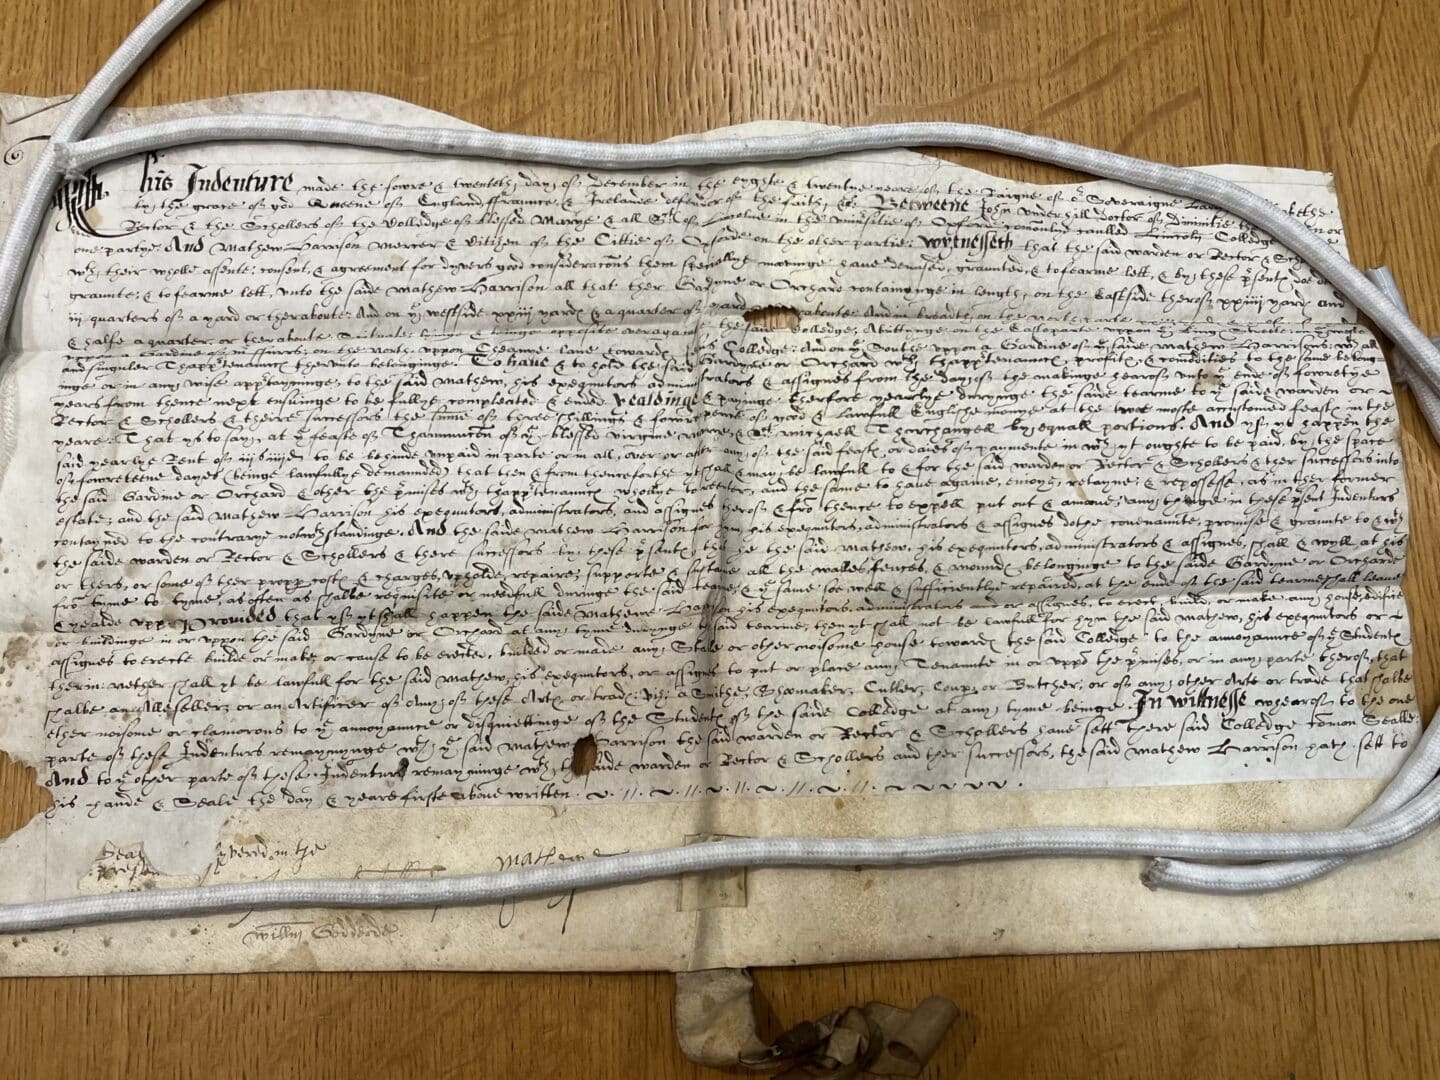 This Indenture made the fowre & twenteth day of December in the eyghte & twentye yeare of the Raigne of oʳ Soveraigne
by the grace of god Queene of England ffraunce & Irelande defendor of the faith, &c Betweene John Underhill doctor of Divinitie
Rector & the Schollers of the Colledge of blessed Marye & all Sᵗˢ of Lincolne in the universitie of Oxford comonlie caulled Lincoln Colledge
one partye. And Mathew Harrison Mercer & Citizen of the Cittie of Oxforde on the other partie: wytnesseth that the said warden or Rector &
wᵗʰ their wholle assente, consent, & agreement for dyvers good consideracons them speciallye movinge have demised, graunted, & to fearme lett, & by these pʳsents doe
graunte, & to fearme lett, unto the saide Mathew Harrison all that ther Gardyne or Orchard containynge in length, on the Eastside therof xxiiii yards and
iii quarters of a yard or theraboute: And on yᵉ westside xxiii yards & a quarter of a yard aboute: And in breadth, on the
& halfe a quarter, or theraboute opposite over againste the saide Colledge: Abuttinge on the Easte parte uppon
uppon a Gardine on the north uppon Cheayne lane towards Colledge: And on yᵉ Southe uppon a Gardine of yᵉ saide Mathew Harrisons, wᵗʰ all
and singuler Thapptenauncs therunto belonginge. To have & to hold the said Gardyne or Orchard wᵗʰ thapptenauncs, profitts, & comodities to the same belong-
inge or in any wise apptayninge, to the said Mathew, his exequutors administrators & assignes from the day of the makinge hearof unto yᵉ ende of fowretye
years from thence next ensuinge to be fullye compleated & ended. yealdinge & payinge therfore yearlye duringe the saide tearme to yᵉ said warden or
Rector & Schollers & theire successors the some of three shillings & fowre pence of good & lawfull Englishe monye at the two moste accustomed feasts in the
yeare: That ys to say, at yᵉ feaste of Thannuncon of yᵉ blessed virgine marye, & Sᵗ michaell Tharchangell by equall portions. And yf yt happen the
said yearlye Rent of iiis iiiid to be behinde unpaid in parte or in all, over or after any of the said feasts or daies of paymente in wᶜʰ yt oughte to be paid, by the space
of fowreteene dayes (beinge lawfullye demanded) that then & from thenceforthe yt shall & may be lawfull to & for the said warden or Rector & Schollers & ther successors into
the said Gardine or Orchard & other the pʳmises wᵗʰ thapptenauncs whollye to reenter, and the same to have againe, enioye, retayne, & repossesse, as in ther former
estate; and the said Mathew Harrison his exequutors, administrators, and assignes therof & frō thence to expell put out & amove: any thinge in these pʳsent Indenturs
contayned to the contrarye notwᵗʰstandinge. And the saide Mathew Harrison for hym, his exequutors, administrators & assignes dothe covenante, promise & graunte to & wᵗʰ
the saide warden or Rector & Schollers & there successors by these pʳsents, that he the said Mathew, his exequutors, administrators & assignes, shall & wyll at his
or thers, or some of ther propp costs & charges, upholde, repaire, supporte & sustaine all the walles, fences, & mounds belonginge to the saide Gardyne or Orchard
frō tyme to tyme, as often as shalbe requisite or needfull duringe the said tearme, & yᵉ same soe well & sufficientlye repaired, at the ende of the said tearme shall leave
& yealde upp. Provided that yf yt shall happen the saide Mathewe Harrison his exequutors, administrators or assignes, to erect, build, or make any house, edifice
or buildinge in or uppon the said Gardyne or Orchard at any tyme duringe said tearme, then yt shall not be lawfull for hym the said Mathew, his exequutors or
assignes to erecte builde or make, or cause to be erected, builded or made any Stale or other noisome house towards the said Colledge to the annoyaunce of yᵉ Students
therin: nether shall yt be lawfull for the said Mathew, his exequutors, or assignes to put or place any Tenaunte in or uppō the pʳmises, or in any parte therof, that
shalbe an Alle seller, or an Artificer of any of these Arts or trads: viz: a Smithe, Shomaker, Cutler, Coup, or Butcher, or of any other Arte or trade that shalbe
ether noisome or clamorous to yᵉ annoyaunce or disquiettinge of the Students of the saide Colledge at any tyme beinge. In wittnesse whearof to the one
parte of these Indenturs remaynynge wᵗʰ yᵉ said Mathew Harrison the said warden or Rector & Schollers have sett there said Colledge comon Seale:
And to yᵉ other parte of these Indenturs remayninge wᵗʰ the saide warden or Rector & Schollers and ther successors, the said Mathew Harrison hath sett to
his hande & Seale the day & yeare firste above written.
Seal vered in the
presen
Mathew
Willm